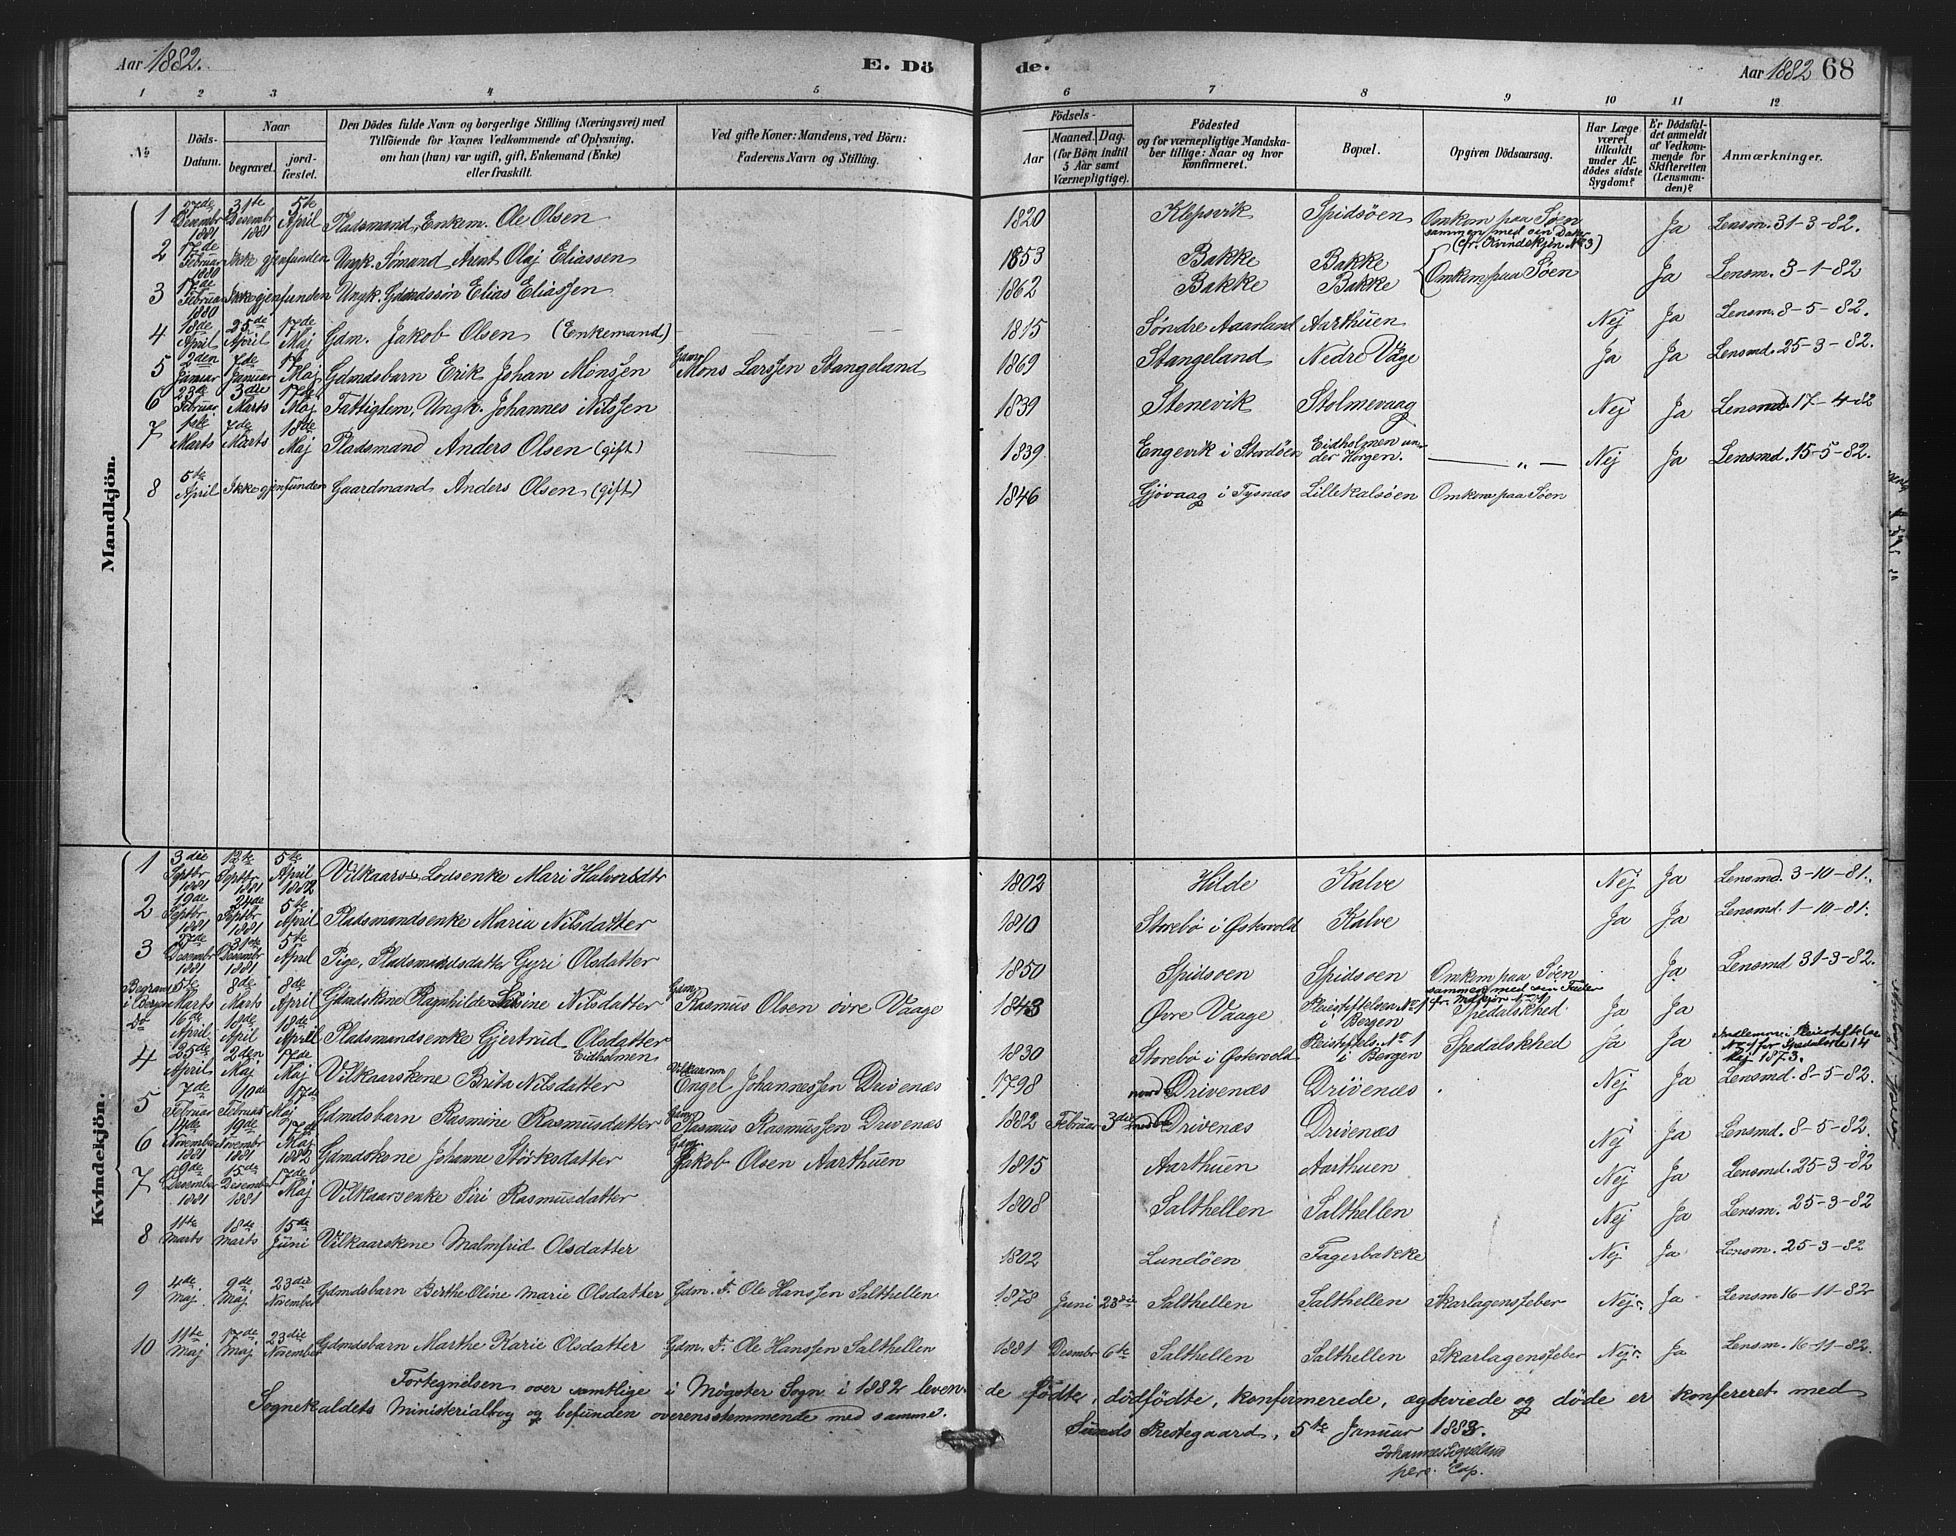 Aar 1882. E. Dö de. Aar 1882 68
1 2 3 4 5 6 7 8 9 10 11 12
No Döds-Datum. Naar begravet. jord-fæstet. Den Dödes fulde Navn og borgerlige Stilling (Næringsvei) med Tilföiende for Voxnes Vedkommende af Oplysning, om han (hun) var ugift, gift, Enkemand (Enke) eller fraskilt. Ved gifte Koner: Mandens, ved Börn: Faderens Navn og Stilling. Födsels- Aar Maaned. Dag. (for Börn indtil 5 Aar samt Værnepligtige). Födested og for værnepligtige Mandskaber tillige: Naar og hvor konfirmeret. Bopæl. Opgiven Dödsaarsag. Har Læge været tilkaldt under Afdödes sidste Sygdom? Er Dödsfaldet anmeldt af Vedkommende for Skifteretten (Lensmanden)? Anmærkninger.
Mandkjön.
1 27de Decembr 1881 31te Decembr 1881 5te April Pladsmand, Enkem. Ole Olsen 1820 Klepsvik Spidsöen Omkom paa Søen sammen med sin Datter (cfr. Qvindekjön No 3) Ja Lensm. 31-3-82.
2 17de Februar 1880 Ikke gjenfunden Ungk. Sömand Arnt Olaj Eliassen 1853 Bakke Bakke { Omkom paa Søen Ja Lensm. 3-1-82
3 17de Februar 1880 Ikke gjenfunden Ungk. Gdmdssön Elias Eliassen 1862 Bakke Bakke
4 18de April 25de April 17de Maj Gdm. Jakob Olsen (Enkemand) 1815 Søndre Aarland Aarthuen Nej Ja Lensm. 8-5-82.
5 2den Januar 7de Januar 17 Maj Gdmdsbarn Erik Johan Monsen Gdm. Mons Larssen Stangeland 1869 Stangeland Nedre Våge Ja Ja Lensmd. 25-3-82.
6 23de Februar 3die Marts 17de Maj Fattiglem, Ungk. Johannes Nilssen 1839 Stenevik Stolmevaag Nej Ja Lensmd. 17-4-82
7 1ste Marts 7de Marts 18de Maj Pladsmand Anders Olsen (gift) 1839 Engevik i Stordöen Eidholmen under Horgen. — „ — Nej Ja Lensmd. 15-5-82.
8 5te April Ikke gjenfunden Gaardmand Anders Olsen (gift) 1846 Gjövaag i Tysnæs Lillekalsöen Omkom paa Søen
Kvindekjön.
1 3die Septbr 1881 12te Septbr 1881 5te April 1882 Vilkaars- Lodsenke Mari Halvorsdtr 1802 Hilde Kalve Nej Ja Lensmd. 3-10-81.
2 19de Septbr 1881 24de Septbr 1881 5te April Pladsmandsenke Maria Nilsdatter 1810 Storebø i Østervold Kalve Ja Ja Lensmd. 1-10-81.
3 27de Decembr 1881 31te Decembr 1881 5te April Pige, Pladsmandsdatter Gyri Olsdatter 1850 Spidsoen Spidsoen Omkom paa Søen sammen med sin Fader cfr. Mdkjön No 1) Ja Lensmd 31-3-82.
Begravet i Bergen 5te Marts 8de Marts 8de April Gdmdskone Ragnhilde Nilsdatter Gdm. Rasmus Olsen övre Vaage 1843 Øvre Vaage Pleiestiftelsen No 1 i Bergen Spedalskhed Ja Ja
Do 6te April 18de April 18de April Pladsmandsenke Gjertrud Olsdatter Eidholmen 1830 Storebø i Østervold Pleiestiftels. No 1 i Bergen Spedalskhed Ja Ja Indlemm. i Pleiestiftelse No 1 for Spedalske 14 Maj 1873.
4 25de April 2den Maj 17de Maj Vilkaarskone Brita Nilsdatter Vilkaarsm Engel Johannessen Drivenæs 1798 nord Drivenæs Drivenæs Nej Ja Lensmd. 8-5-82.
5 7de Februar 10de Februar 17de Maj Gdmdsbarn Rasmine Rasmusdatter Gdm. Rasmus Rasmussen Drivenæs 1882 Februar 3die Drivenæs Drivenæs Nej Ja Lensmd. 8-5-82.
6 November 1881 19de Novembr 1881 17de Maj 1882 Gdmdskone Johanne Störksdatter Gdm. Jakob Olsen Aarthuen 1815 Aarthuen Aarthuen Nej Ja Lensmd. 25-3-82
7 9de Decembr 1881 15de Decembr 1881 17de Maj Vilkaarsenke Siri Rasmusdatter 1808 Salthellen Salthellen Nej Ja Lensm. 25-3-82
8 11te Marts 18de Marts 15de Juni Vilkaarskone Malmfrid Olsdatter 1802 Lundöen Fagerbakke Nej Ja Lensm. 25-3-82
9 4de Maj 9de Maj 23die November Gdmdsbarn Berthe Oline Marie Olsdatter Gdm. F. Ole Hanssen Salthellen 1878 Juni 23die Salthellen Salthellen Skarlagensfeber Nej Ja Lensm 16-11-82
10 11te Maj 17de Maj 23die November Gdmdsbarn Marthe Karie Olsdatter Gdm. F. Ole Hanssen Salthellen 1881 Desmbr 6te Salthellen Salthellen Skarlagensfeber Nej Ja Lensm. 16-11-82.
Fortegnelsen over samtlige i Møgster Sogn i 1882 levende fødte, dödfödte, konfirmerede, ægteviede og døde er konfereret med
Sognekaldets Ministerialbog og befunden overensstemmende med samme.
Sunds Prestegaard, 5te Januar 1883.
Johannes
pers. Cap.